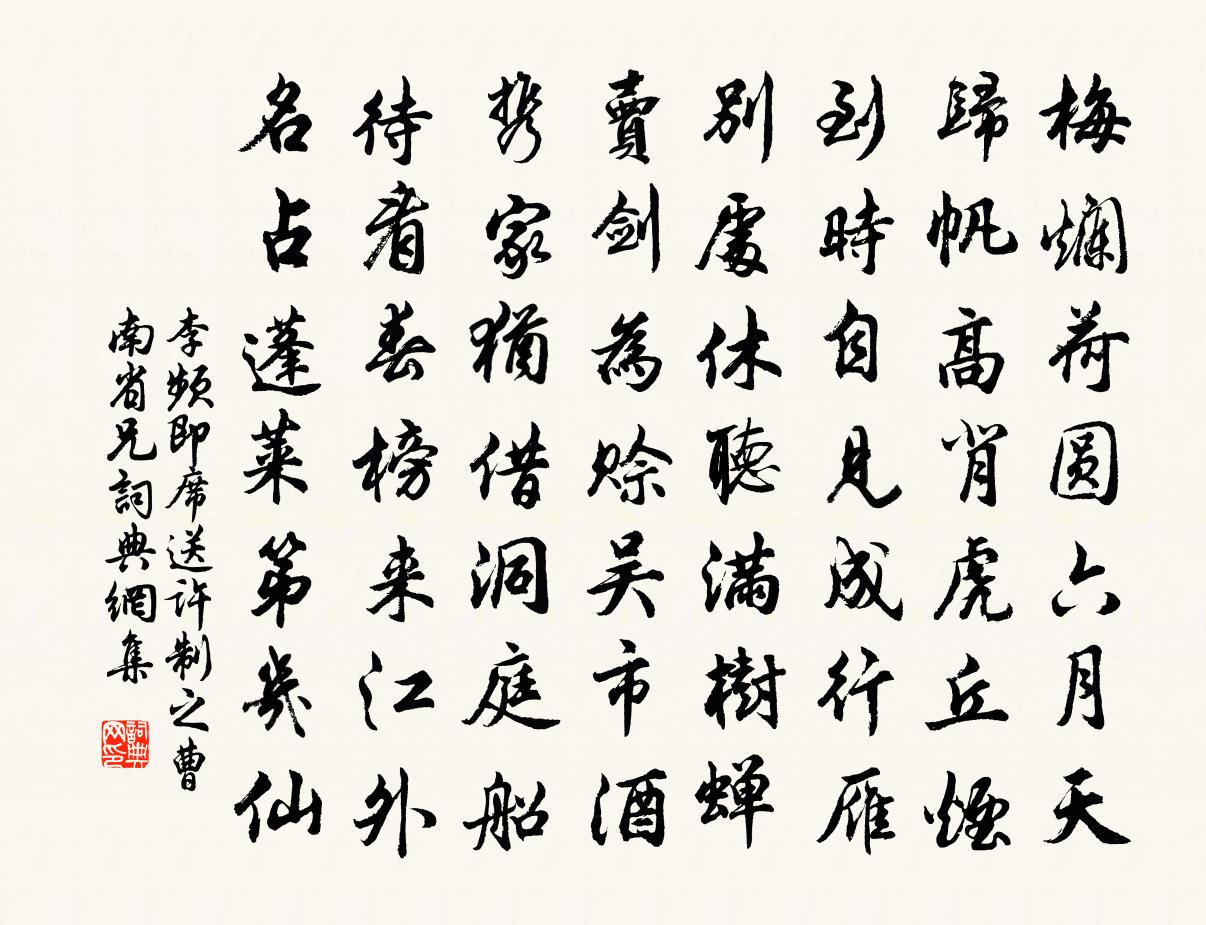 梅爛荷圓六月天
歸帆高背虎丘煙
到時自見成行雁
別處休聽滿樹蟬
賣劍為賒吳市酒
携家猶借洞庭船
待看春榜来江外
名占蓬萊第幾仙
李頻即席送許制之曹
南省兄詞典網集
詞典
網印